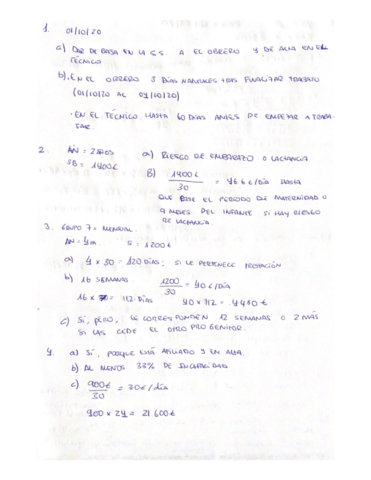 1. 01/10/20
a) DAR DE BAJA EN LA S.S. A EL OBRERO Y DE ALTA EN EL
TÉCNICO
b) · EN EL OBRERO 3 DÍAS NATURALES TRAS FINALIZAR TRABAJO
(01/10/20 AL
· EN EL TÉCNICO HASTA 60 DÍAS ANTES DE EMPEZAR A TRABA-
JAR.
2. AN = 2 AÑOS a) RIESGO DE EMBARAZO O LACTANCIA
SB = 1400€
B) 1400€ / 30 = 46'6 €/DÍA HASTA
QUE PASE EL PERIODO DE MATERNIDAD O
9 MESES DEL INFANTE SI HAY RIESGO
DE LACTANCIA.
3. GRUPO 7 = MENSUAL.
AN = 4m S = 1200€
a) 4 x 30 = 120 DÍAS; SI LE PERTENECE PRESTACIÓN
b) 16 SEMANAS 1200 / 30 = 40€/DÍA
16 x = 112 DÍAS 40 x 112 = 4480€
c) SÍ, PERO, LE CORRESPONDEN 12 SEMANAS O 2 MÁS
SI LAS CEDE EL OTRO PROGENITOR.
4. a) SÍ, PORQUE ESTÁ AFILIADO Y EN ALTA.
b) AL MENOS 33% DE INCAPACIDAD
c) 900€ / 30 = 30€/día
900 x 24 = 21600€